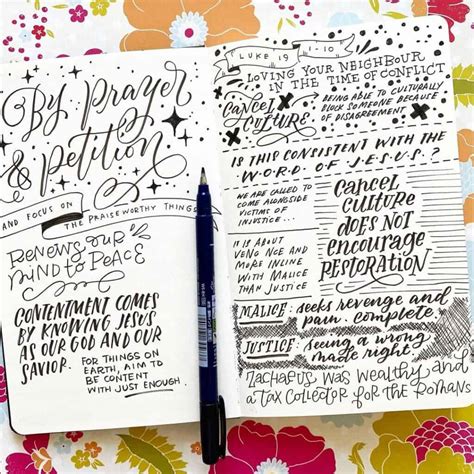 By prayer
& petition
AND FOCUS ON
THE PRAISEWORTHY THINGS
Renews our
mind to peace
CONTENTMENT COMES
BY KNOWING JESUS
AS OUR GOD AND OUR
SAVIOR.
FOR THINGS ON
EARTH, AIM TO
BE CONTENT
WITH JUST ENOUGH.
LUKE 19 1-10
LOVING YOUR NEIGHBOUR
IN THE TIME OF CONFLICT
CANCEL
CULTURE
BEING ABLE TO CULTURALLY
BLOCK SOMEONE BECAUSE
OF DISAGREEMENT
IS THIS CONSISTENT WITH THE
WORD OF JESUS?
WE ARE CALLED TO
COME ALONGSIDE
VICTIMS OF
INJUSTICE
IT IS ABOUT
VENGNCE AND
MORE INLINE
WITH MALICE
THAN JUSTICE
CANCEL
CULTURE
DOES NOT
ENCOURAGE
RESTORATION
MALICE: seeks revenge and
pain. complete.
JUSTICE: seeing a wrong
made right.
Zachaeus was wealthy and
a tax collector for the Romans